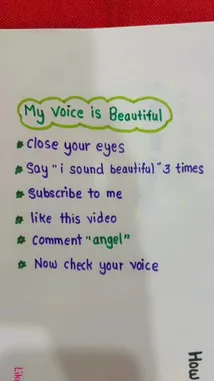 My Voice is Beautiful
close your eyes
Say "i sound beautiful" 3 times
Subscribe to me
like this video
Comment "angel"
Now check your voice
How
Lik